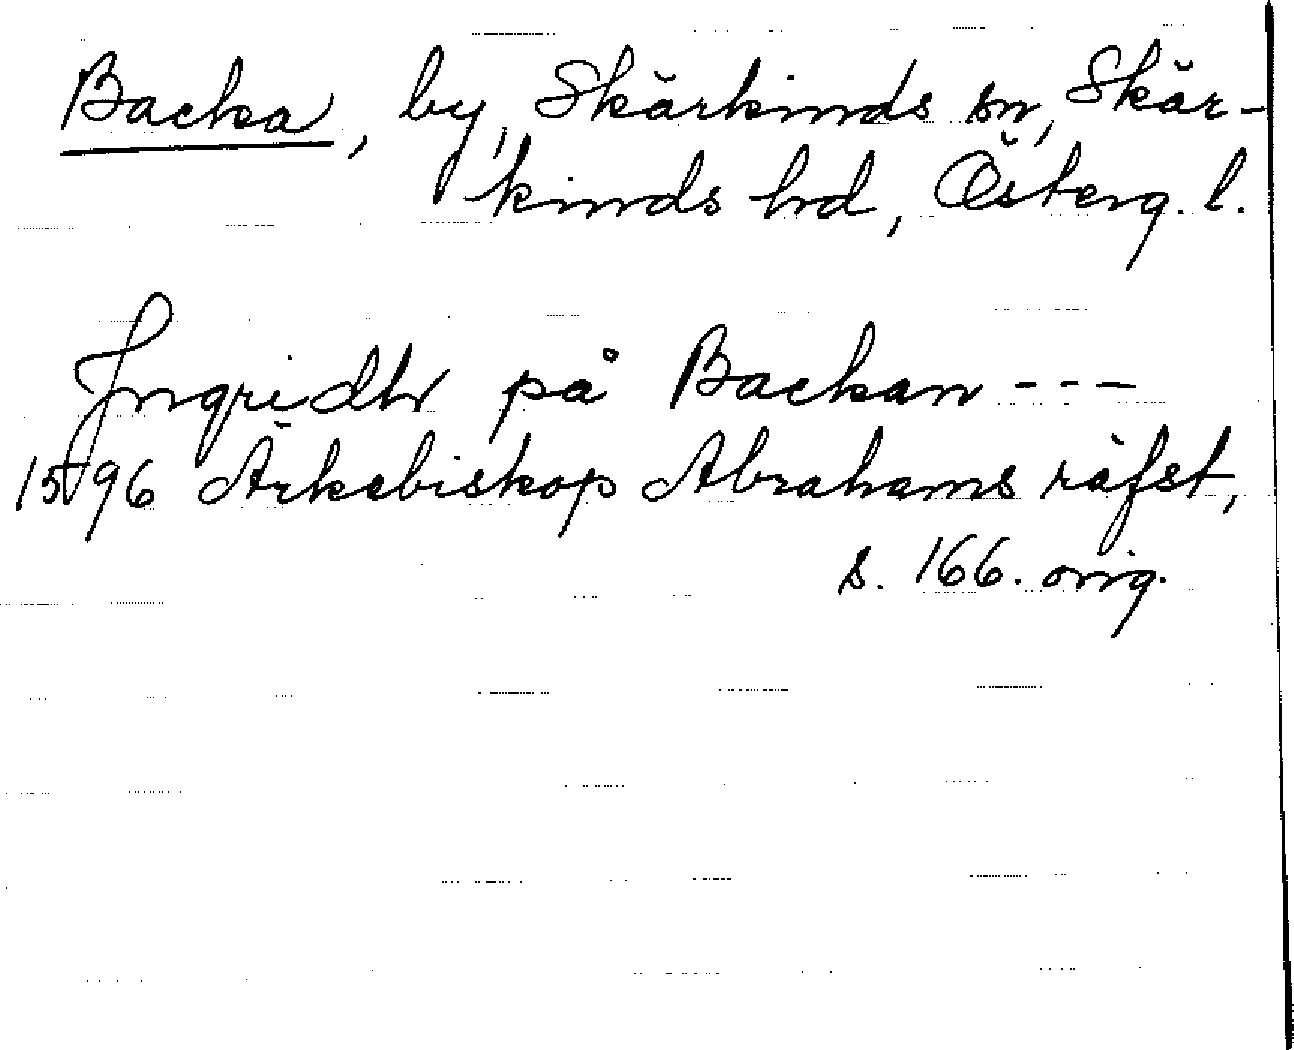 Backa, by, Skärkinds sn, Skär-
kinds hd, Österg. l.
Jngridhr på Backan ---
1596 Ärkebiskop Abrahams räfst,
s. 166. orig.